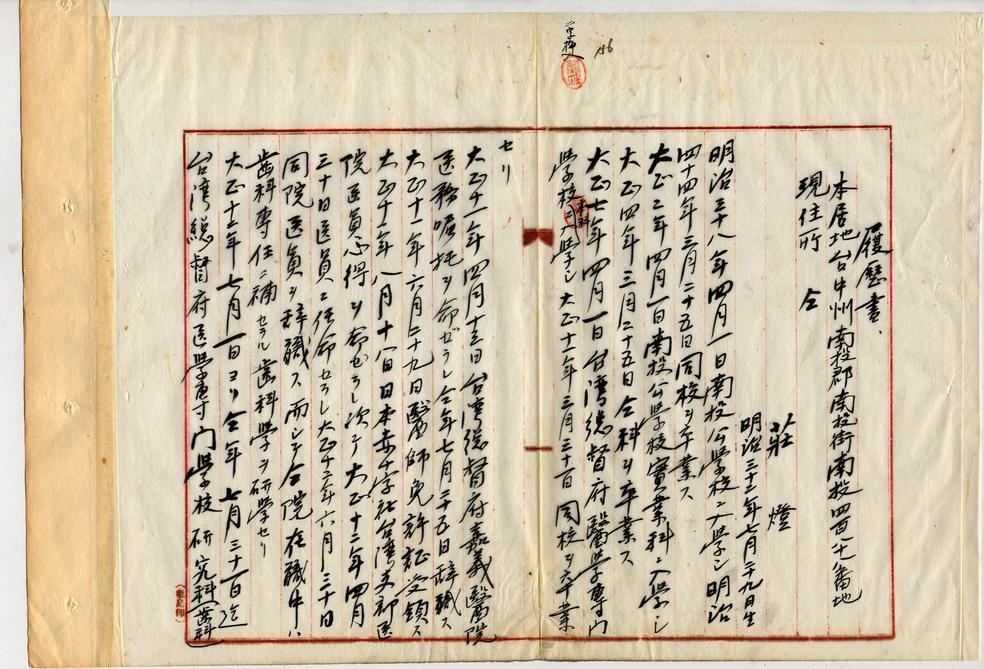 履歷書、
本居地台中州南投郡南投街南投四百十八番地
現住所 仝
莊 燈
明治三十二年七月二十九日生
明治三十八年四月一日南投公學校ニ入學シ明治
四十四年三月二十五日同校ヲ卒業ス
大正二年四月一日南投公學校實業科ニ入學シ
大正四年三月二十五日仝科ヲ卒業ス
大正七年四月一日台湾總督府醫學專門
學校本科ニ入學シ大正十一年三月三十日同校ヲ卒業
セリ
大正十一年四月十三日台湾總督府嘉義醫院
医務嘱托ヲ命ゼラレ仝年七月二十五日辞職ス
大正十一年六月二十九日醫師免許証受領ス
大正十一年八月十八日日本赤十字社台湾支部医
院医員心得ヲ命ゼラレ次デ大正十二年四月
三十日医員ニ任命セラレ大正十三年六月三十日
同院医員ヲ辞職ス而シテ仝院在職中ハ
歯科專任ニ補セラレ歯科學ヲ研學セリ
大正十三年七月一日ヨリ仝年七月三十一日迄
台湾總督府医學專門學校研究科歯科